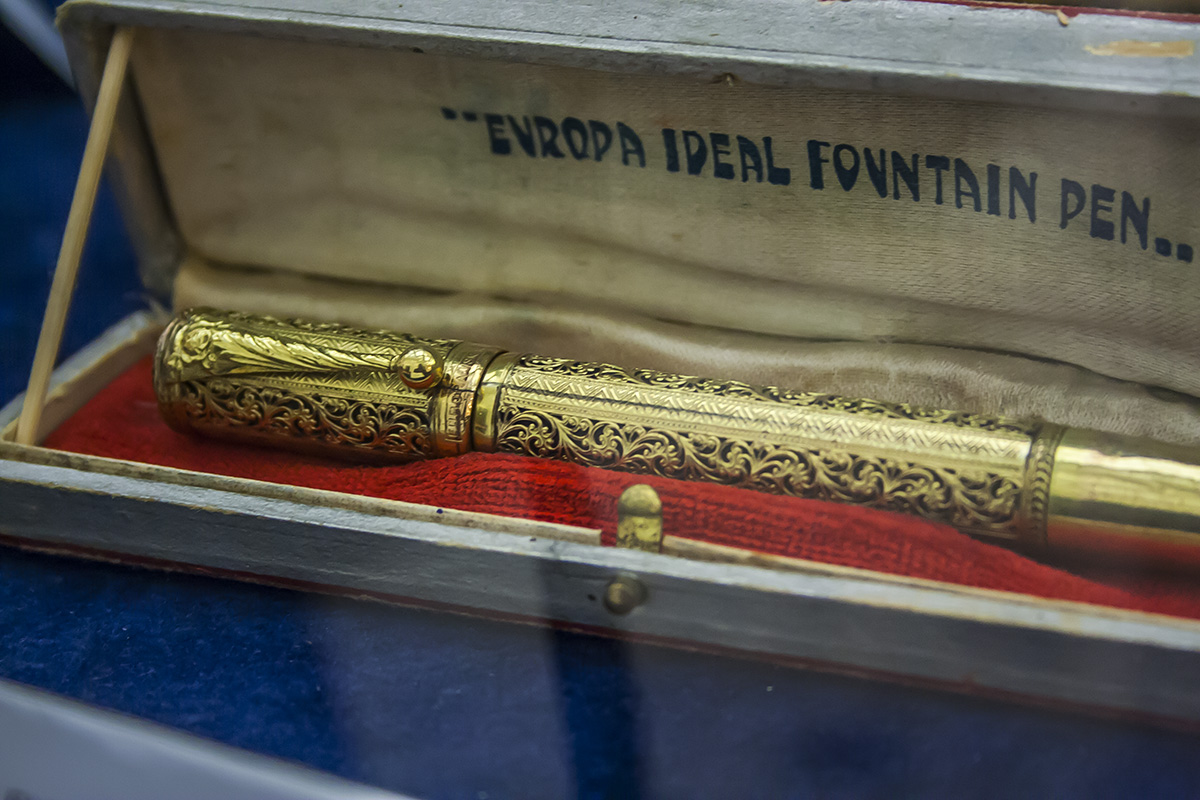 ..EVROPA IDEAL FOVNTAIN PEN..